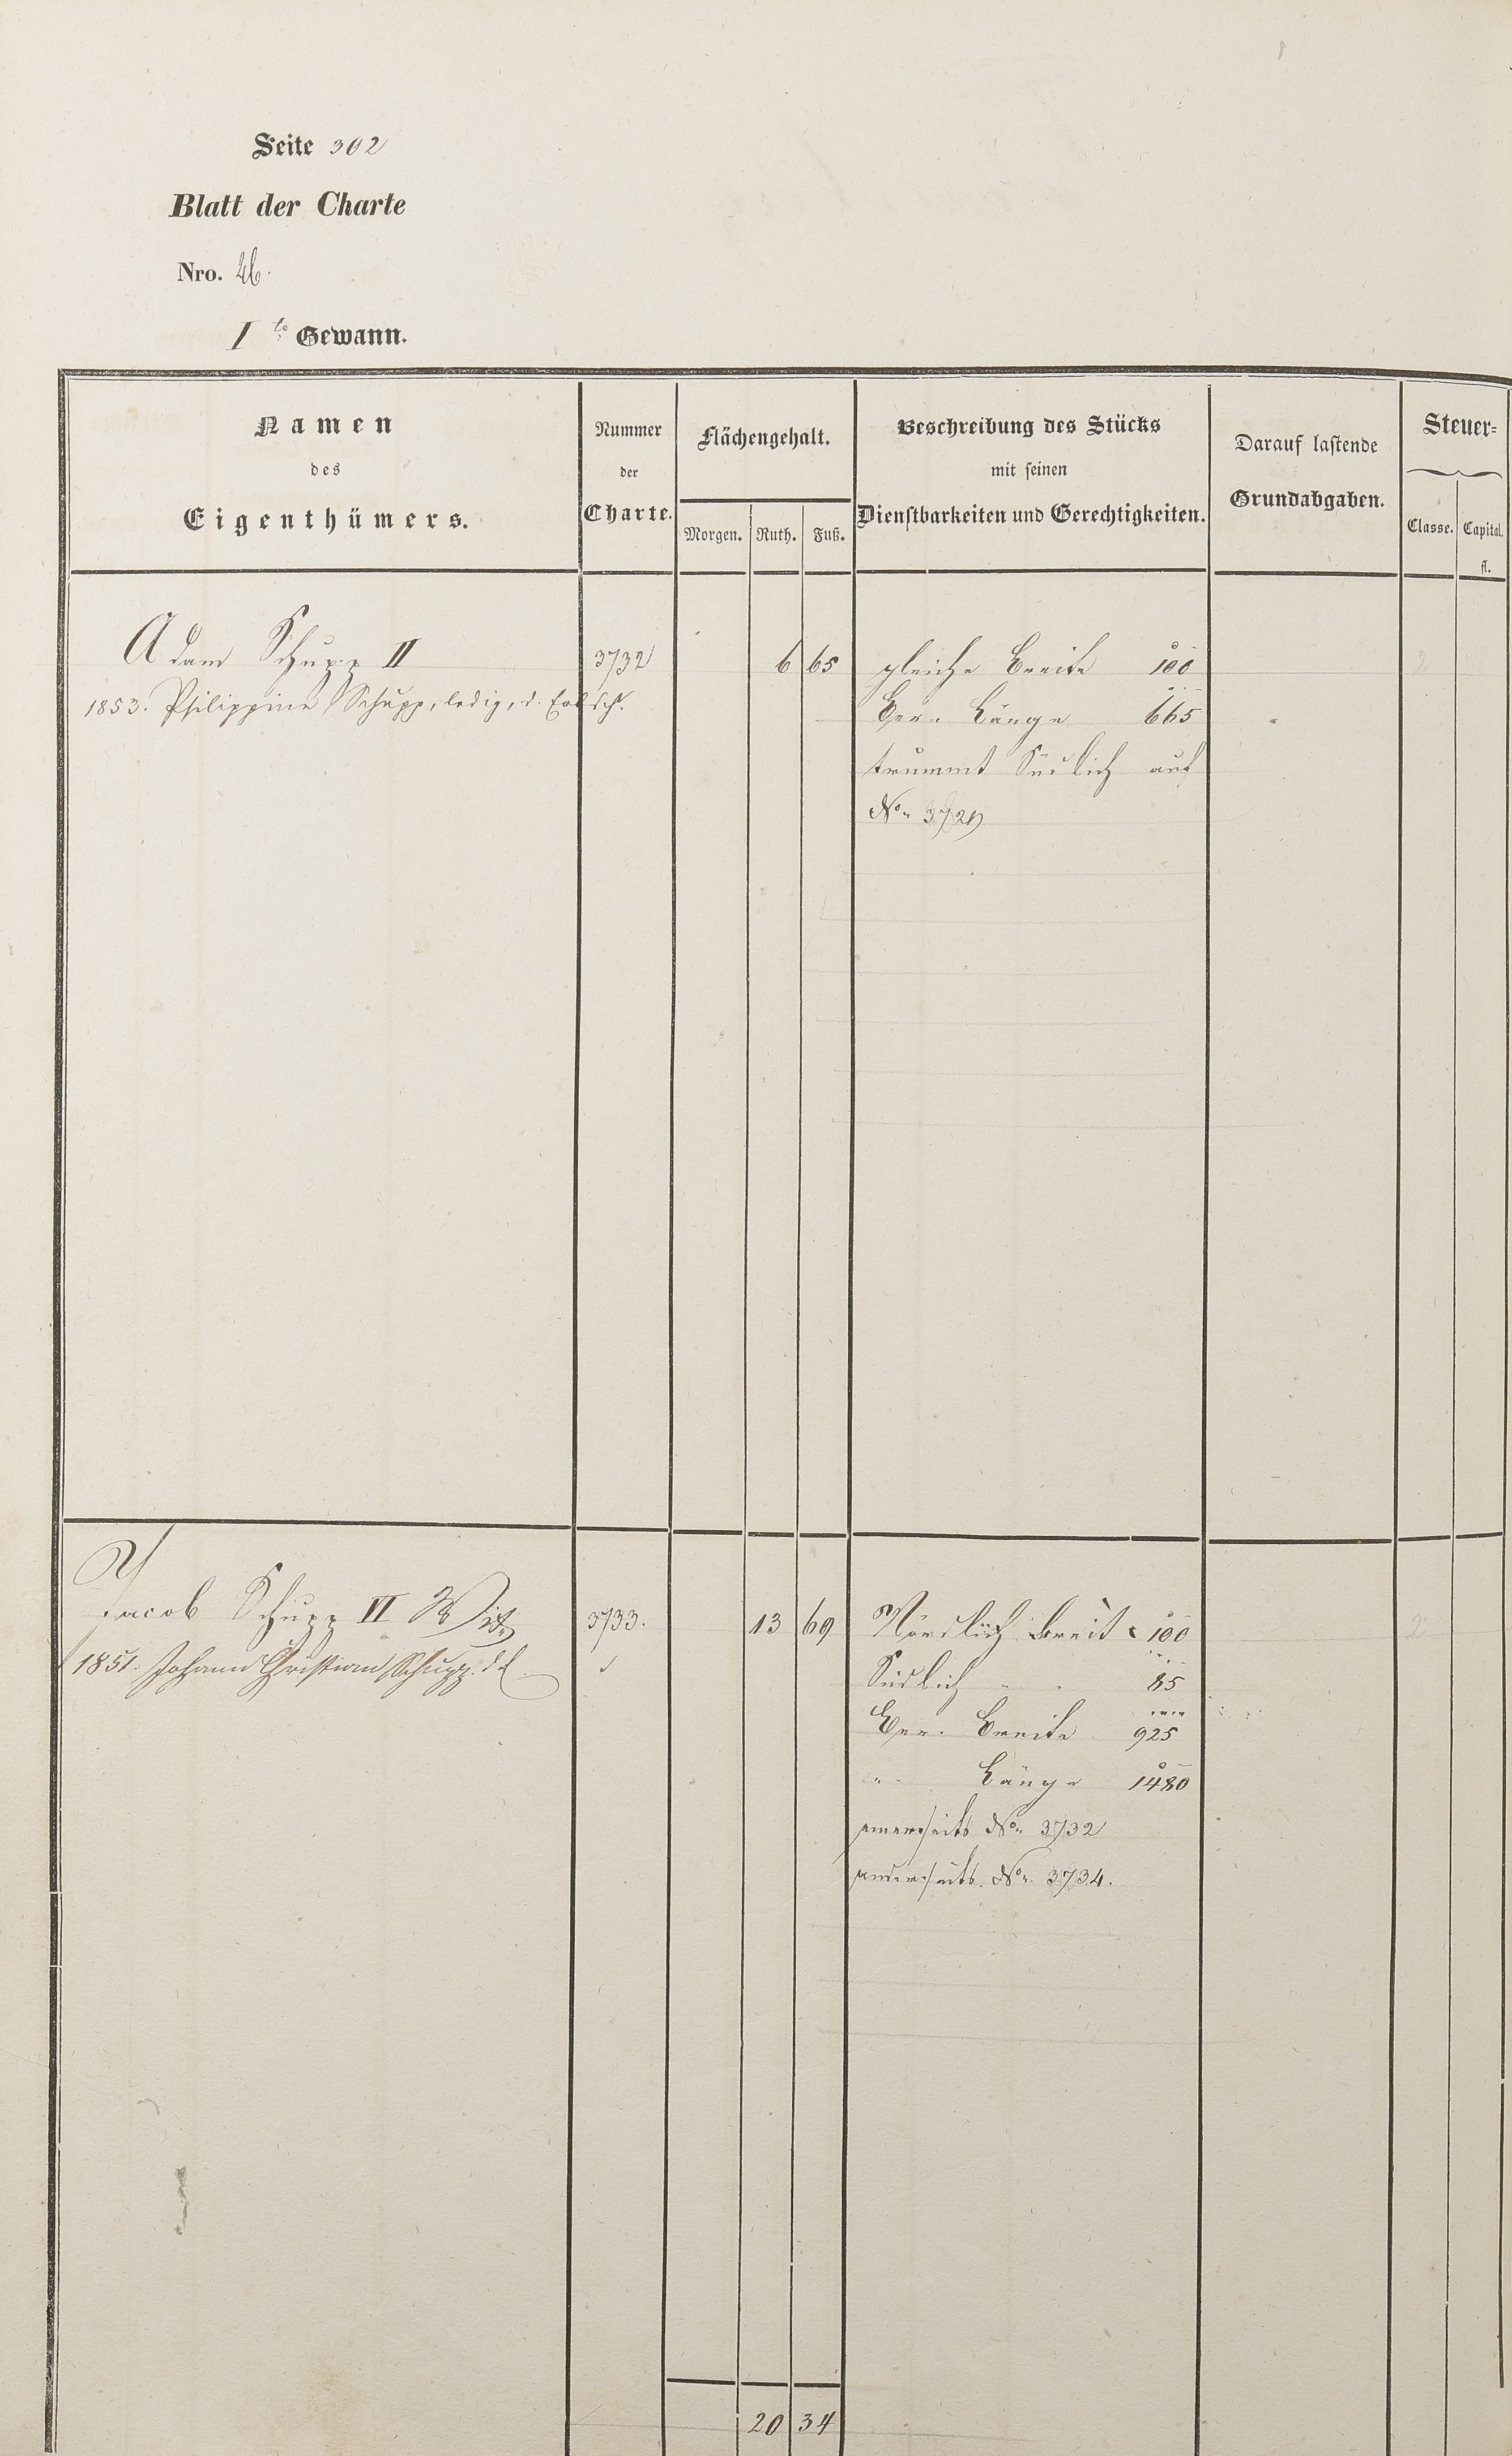 Seite 302
Blatt der Charte
Nro. 26.
I te Gewann.
Namen
des
Eigenthümers.
Nummer
der
Charte.
Flächengehalt.
Morgen. Ruth. Fuß.
Beschreibung des Stücks
mit seinen
Dienstbarkeiten und Gerechtigkeiten.
Darauf lastende
Grundabgaben.
Steuer-
Classe. Capital.
fl.
Adam Schupp II 3732 6 65 gleiche Breite 100 2
1853. Philippine Schupp, ledig, d. Erbsch. Ber. Länge 665
trummt Südlich auf
No. 3729
Jacob Schupp VI Wit. 3733. 13 69 Nördlich Breit 100 2
1851. Johann Christian Schupp. Südlich " " 85
Ber. Breite 925
" Länge 1480
einerseits No. 3732
anderseits No. 3734.
20 34